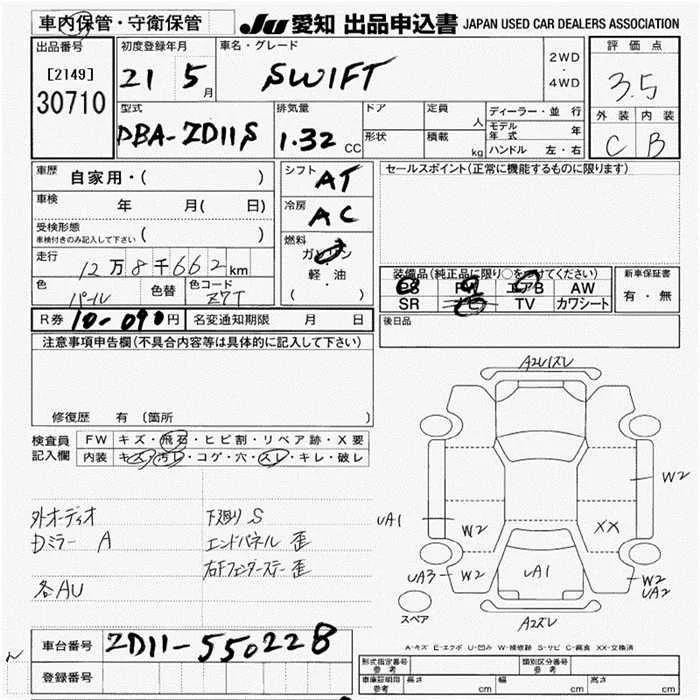 車内保管・守衛保管
JU 愛知 出品申込書 JAPAN USED CAR DEALERS ASSOCIATION
出品番号
[2149]
30710
初度登録年月
21 5月
車名・グレード
SWIFT
2WD
・
4WD
評価点
3.5
外装 内装
C B
型式
DBA-ZD11S
排気量
1.32 CC
ドア
形状
定員
人
積載
kg
ディーラー・並行
モデル年式 年
ハンドル 左・右
車歴
自家用・( )
車検
年 月( 日)
受検形態
車検付きのみ記入して下さい ( )
走行
12万8千662km
色
パール
色替
色コード
Z7T
シフト
AT
冷房
AC
燃料
ガソリン
・
軽油
( )
セールスポイント(正常に機能するものに限ります)
装備品(純正品に限り○をつけてください)
PS PW エアB AW
SR ナビ TV カワシート
新車保証書
有・無
R券 10-090円 名変通知期限 月 日
後日品
注意事項申告欄(不具合内容等は具体的に記入して下さい)
修復歴 有 (箇所
検査員
記入欄
FW キズ・飛石・ヒビ割・リペア跡・X要
内装 キズ・汚レ・コゲ・穴・スレ・キレ・破レ
外オーディオ
Dミラー A
各AU
下廻り S
エンドパネル 歪
右Fフェンダーステー歪
A2Uスレ
W2
UA1
W2
XX
UA3
W2
UA1
W2
UA2
A2スレ
スペア
A-キズ E-エクボ U-凹み W-補修跡 S-サビ C-腐食 XX-交換済
車台番号 ZD11-550228
登録番号
型式指定番号
参考
類別区分番号
参考
車庫証明用
参考
長さ cm
幅 cm
高さ cm